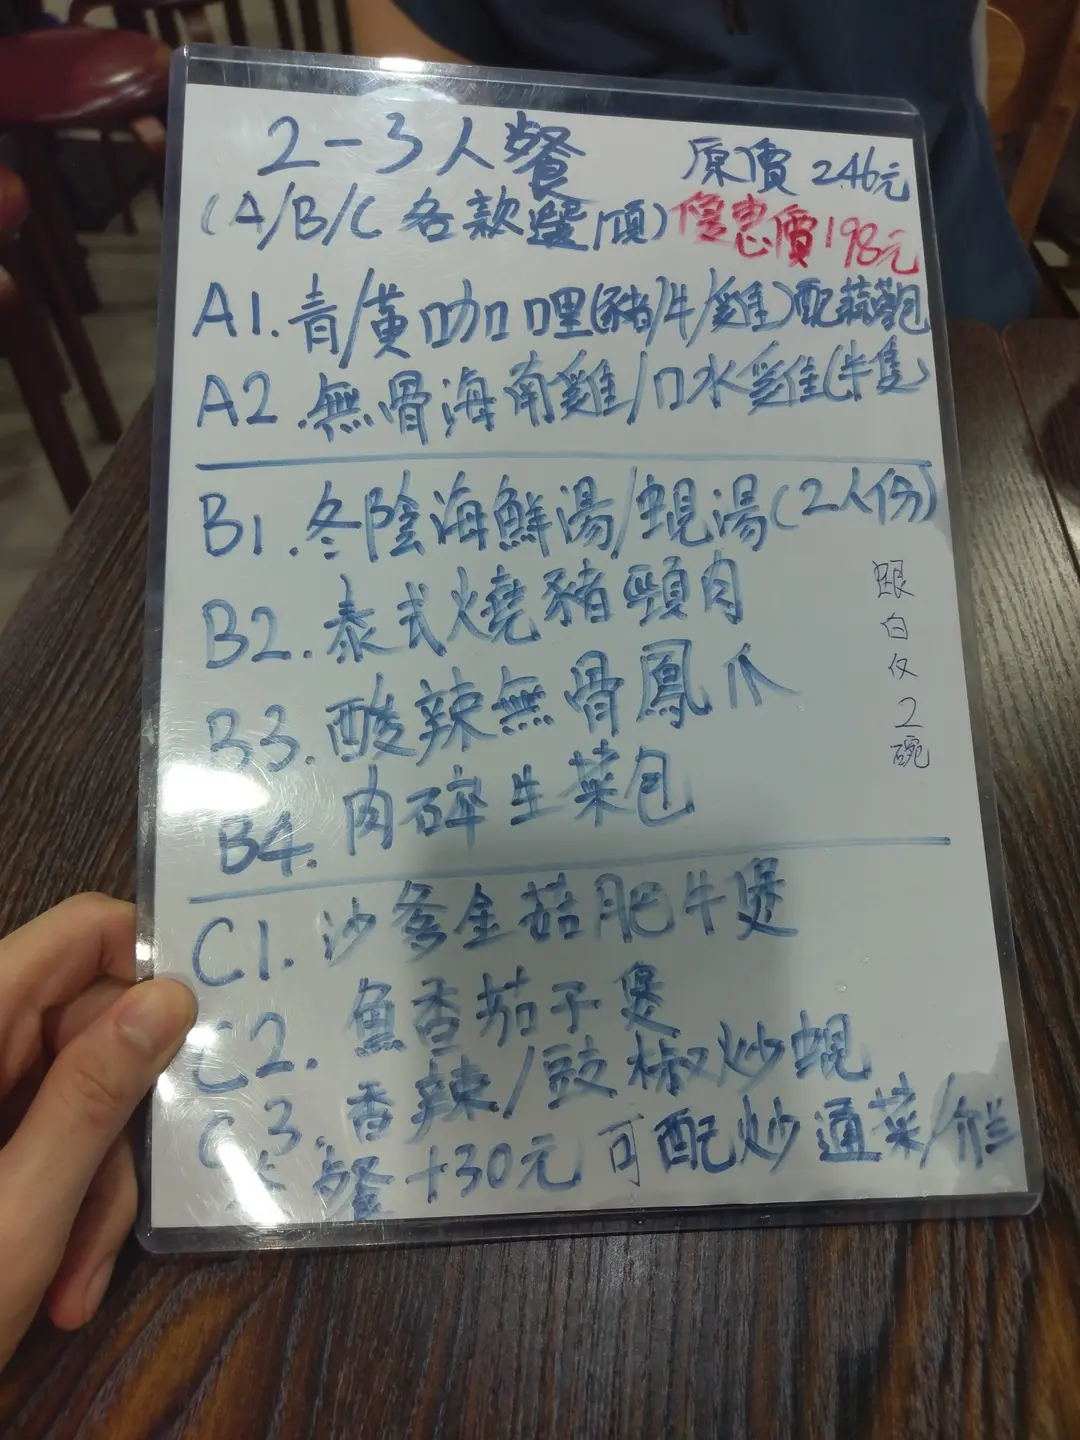 2-3人餐
原價 246元
(A/B/C 各款選1項)
優惠價198元
A1.青/黃咖喱(豬/牛/雞)配蒜蓉包
A2.無骨海南雞/口水雞(半隻)
B1.冬陰海鮮湯/蜆湯(2人份)
B2.泰式燒豬頸肉
B3.酸辣無骨鳳爪
B4.肉碎生菜包
跟白仮2碗
C1.沙爹金菇肥牛煲
C2.魚香茄子煲
C3.香辣/豉椒炒蜆
餐+30元可配炒通菜/介兰